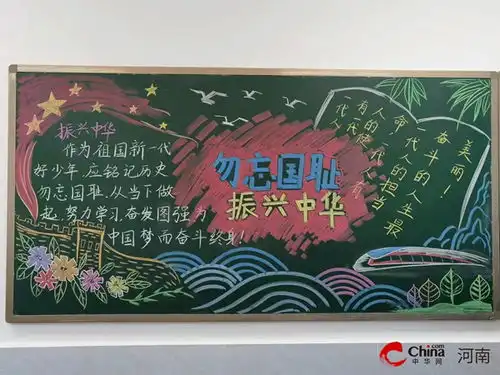 振兴中华
作为祖国新一代
好少年,应铭记历史
勿忘国耻,从当下做
起,努力学习,奋发图强为
中国梦而奋斗终身!
勿忘国耻
振兴中华
代人
有一代
人的使
命 代人有
一代人的担当
奋斗的人生最
美丽!
China.com
中华网
河南